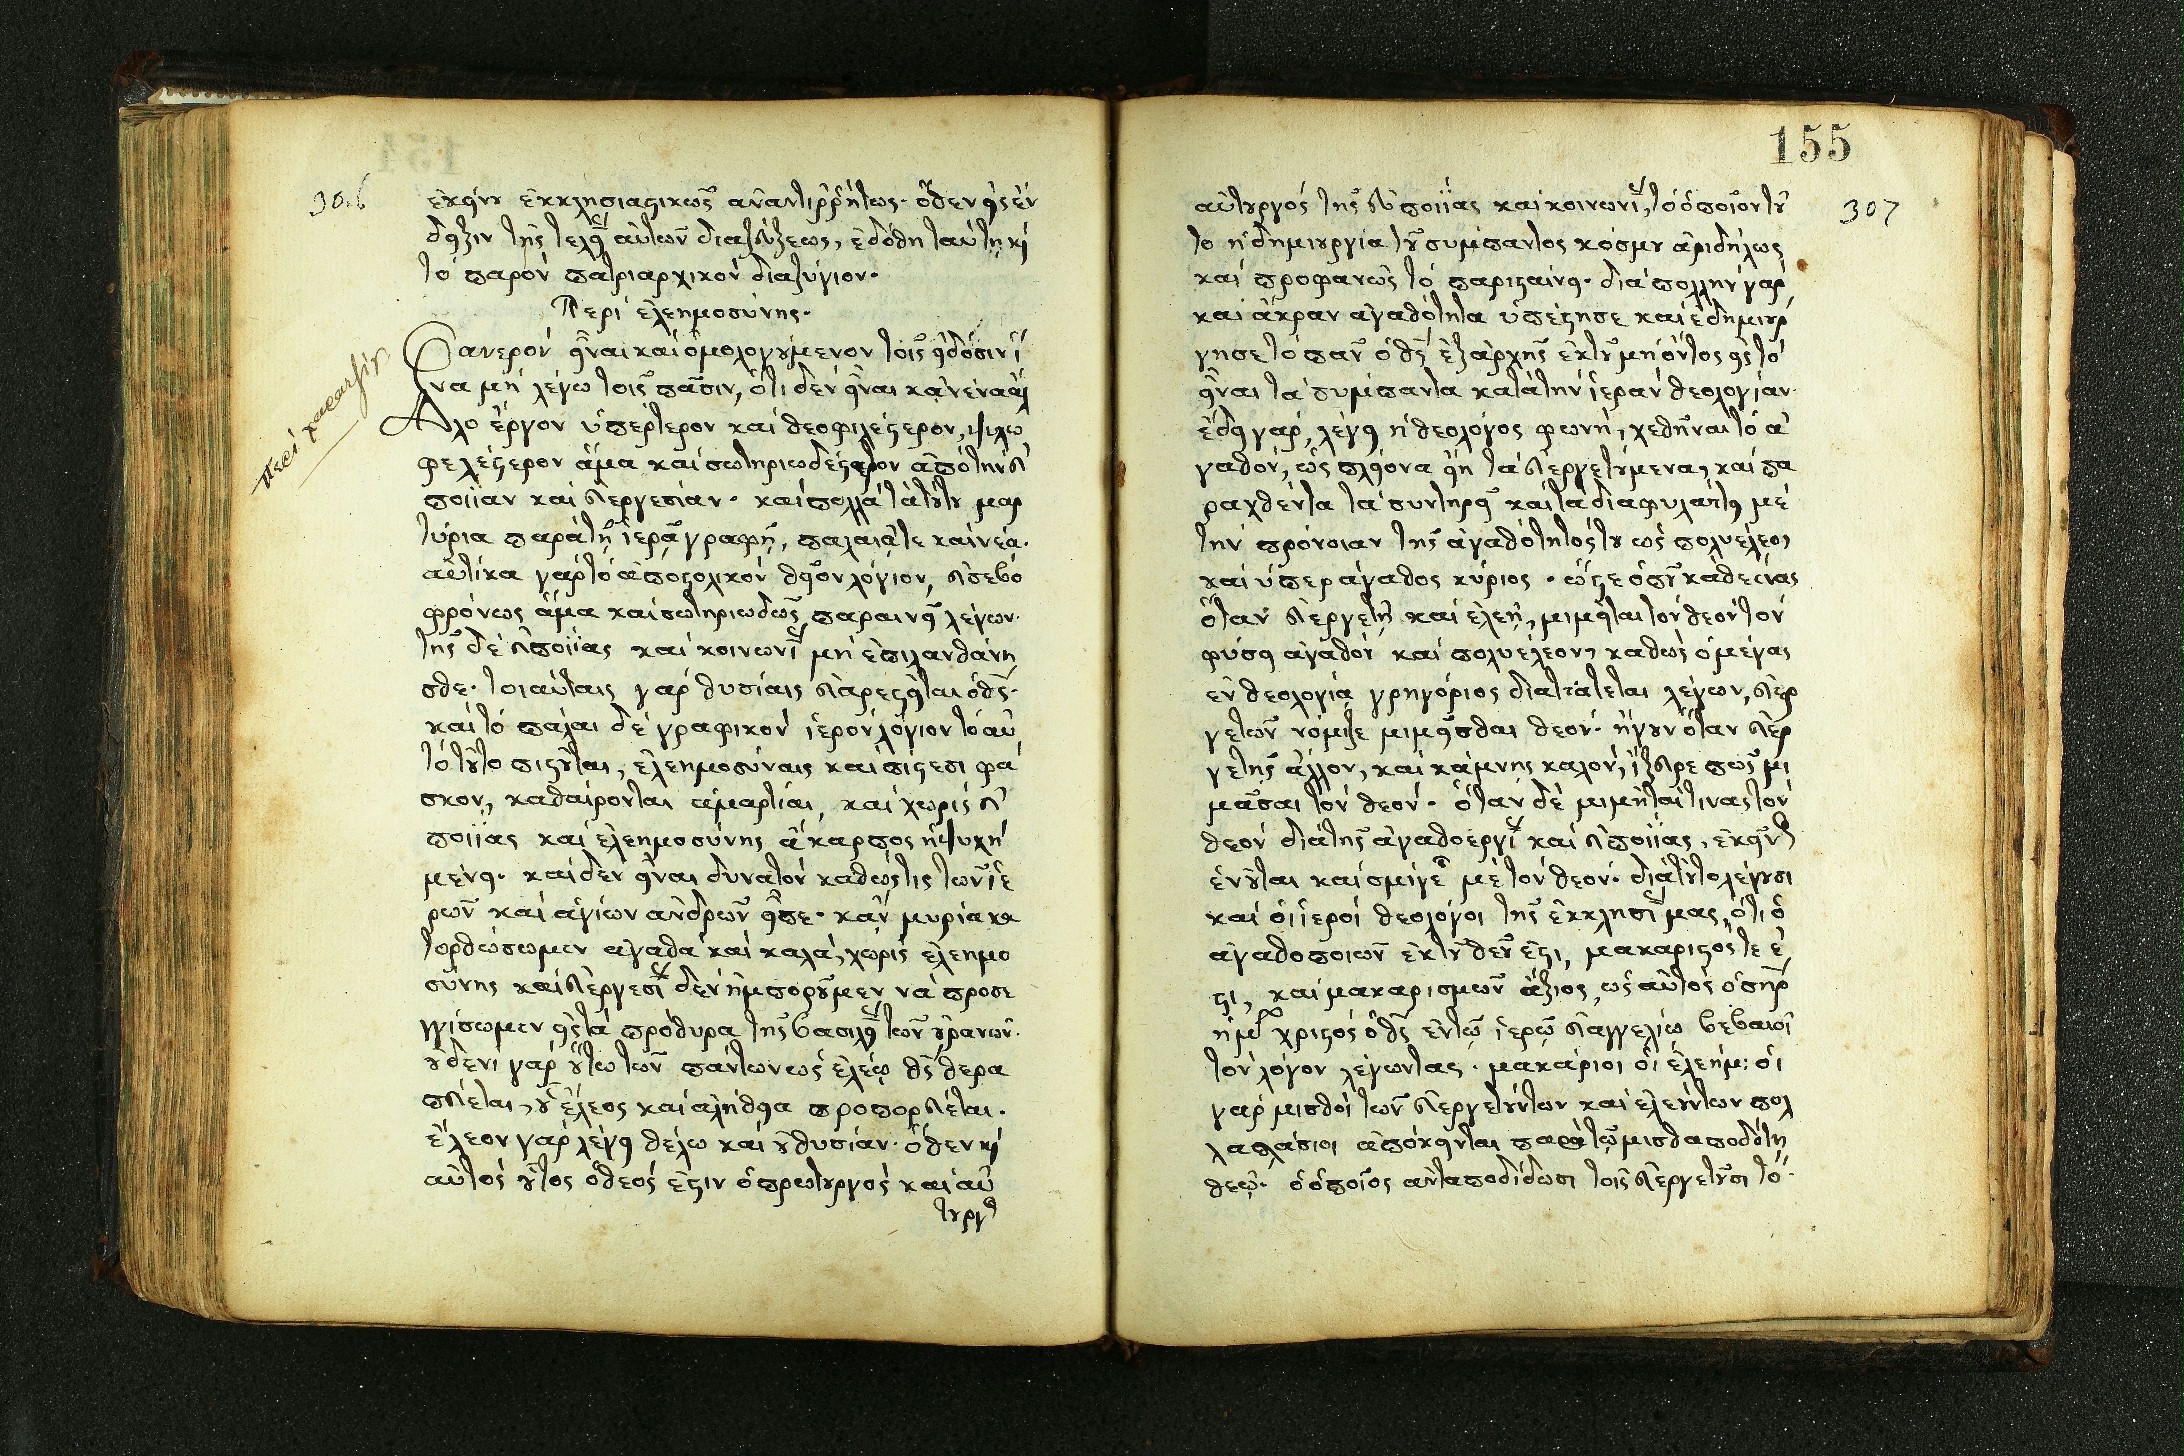 306
ἐκείνου ἐκκλησιαστικῶς ἀναντιρρήτως· ὅθεν εἰς ἔν
δειξιν τῆς τελείας αὐτῶν διαζεύξεως, ἐδόθη ταύτῃ καὶ
τὸ παρὸν πατριαρχικὸν διαζύγιον.
Περὶ ἐλεημοσύνης.
Φανερὸν εἶναι καὶ ὁμολογούμενον τοῖς εἰδόσιν ἵ
να μὴ λέγω τοῖς πᾶσιν, ὅτι δὲν εἶναι κᾀνένα ἄλ
λο ἔργον ὑπέρτερον καὶ θεοφιλέστερον,
φελέστερον ἅμα καὶ σωτηριωδέστερον ἀπὸ τὴν εὐ
ποιΐαν καὶ εὐεργεσίαν· καὶ πολλὰ τὰ τούτου μαρ
τύρια παρὰ τῇ ἱερᾷ γραφῇ, παλαιᾷ τε καὶ νέᾳ·
αὐτίκα γὰρ τὸ ἀποστολικὸν θεῖον λόγιον, εὐσεβο
φρόνως ἅμα καὶ σωτηριωδῶς παραινεῖ λέγων·
τῆς δὲ εὐποιΐας καὶ κοινωνίας μὴ ἐπιλανθάνη
σθε· τοιαύταις γὰρ θυσίαις εὐαρεστεῖται ὁ θς·
καὶ τὸ πάλαι δὲ γραφικὸν ἱερὸν λόγιον τὸ αὐ
τὸ τοῦτο πιστοῦται, ἐλεημοσύναις καὶ πίστεσι φά
σκον, καθαίρονται ἁμαρτίαι, καὶ χωρὶς εὐ
ποιΐας καὶ ἐλεημοσύνης ἄκαρπος ἡ ψυχὴ
μένει· καὶ δὲν εἶναι δυνατὸν καθώς τις τῶν ἱε
ρῶν καὶ ἁγίων ἀνδρῶν εἶπε· κᾂν μυρία κα
τορθώσωμεν ἀγαθὰ καὶ καλά, χωρὶς ἐλεημο
σύνης καὶ εὐεργεσίας δὲν ἠμποροῦμεν νὰ προσε
γγίσωμεν εἰς τὰ πρόθυρα τῆς βασιλείας τῶν οὐρανῶν·
οὐδενὶ γὰρ οὕτω τῶν πάντων ὡς ἐλέῳ θς θερα
πεύεται, οὗ ἔλεος καὶ ἀλήθεια προπορεύεται.
ἔλεον γὰρ λέγει θέλω καὶ οὐ θυσίαν· ὅθεν καὶ
αὐτὸς οὗτος ὁ θεός ἐστιν ὁ πρωτουργὸς καὶ αὐ
τουργὸς
155
307
αὐτουργὸς τῆς εὐποιΐας καὶ κοινωνίας, τὸ ὁποῖον τοῦ
το ἡ δημιουργία τοῦ σύμπαντος κόσμου ἀριδήλως
καὶ προφανῶς τὸ παρισταίνει· διὰ πολλὴν γὰρ
καὶ ἄκραν ἀγαθότητα ὑπέστησε καὶ ἐδημιούρ
γησε τὸ πᾶν ὁ θς ἐξ ἀρχῆς ἐκ τοῦ μὴ ὄντος εἰς τὸ
εἶναι τὰ σύμπαντα κατὰ τὴν ἱερὰν θεολογίαν·
ἔδει γάρ, λέγει ἡ θεολόγος φωνή, χεθῆναι τὸ ἀ
γαθόν, ὡς πλείονα εἴη τὰ εὐεργετούμενα, καὶ πα
ραχθέντα τὰ συντηρεῖ καὶ τὰ διαφυλάττει μὲ
τὴν πρόνοιαν τῆς ἀγαθότητός του ὡς πολυέλεος
καὶ ὑπεράγαθος κύριος· ὥστε ὁποῦ καθεὶς
ὅταν εὐεργετῇ καὶ ἐλεῇ, μιμεῖται τὸν θεὸν τὸν
φύσει ἀγαθὸν καὶ πολυέλεον, καθὼς ὁ μέγας
ἐν θεολογίᾳ γρηγόριος διατάττεται λέγων, εὐερ
γετῶν νόμιζε μιμεῖσθαι θεόν· ἤγουν ὅταν εὐερ
γετῇς ἄλλον, καὶ κάμνῃς καλόν, ἤξευρε πῶς μι
μᾶσαι τὸν θεόν· ὅταν δὲ μιμῆται τινὰς τὸν
θεὸν διὰ τῆς ἀγαθοεργίας καὶ εὐποιΐας, ἐκεῖνος
ἑνοῦται καὶ σμίγει μὲ τὸν θεόν· διὰ τοῦτο λέγουσι
καὶ οἱ ἱεροὶ θεολόγοι τῆς ἐκκλησίας μας, ὅτι ὁ
ἀγαθοποιῶν ἐκ τοῦ θεοῦ ἐστι, μακαριστός τε ἐ
στι, καὶ μακαρισμῶν ἄξιος, ὡς αὐτὸς ὁ σηρ
ἡμῶν χριστὸς ὁ θς ἐν τῷ ἱερῷ εὐαγγελίῳ βεβαιοῖ
τὸν λόγον λέγωντας· μακάριοι οἱ ἐλεήμ: οἱ
γὰρ μισθοὶ τῶν εὐεργετούντων καὶ ἐλεούντων πολ
λαπλάσιοι ἀπόκεινται παρὰ τῷ μισθαποδότῃ
θεῷ· ὁ ὁποῖος ἀνταποδίδωσι τοῖς εὐεργετοῦσι τὸ